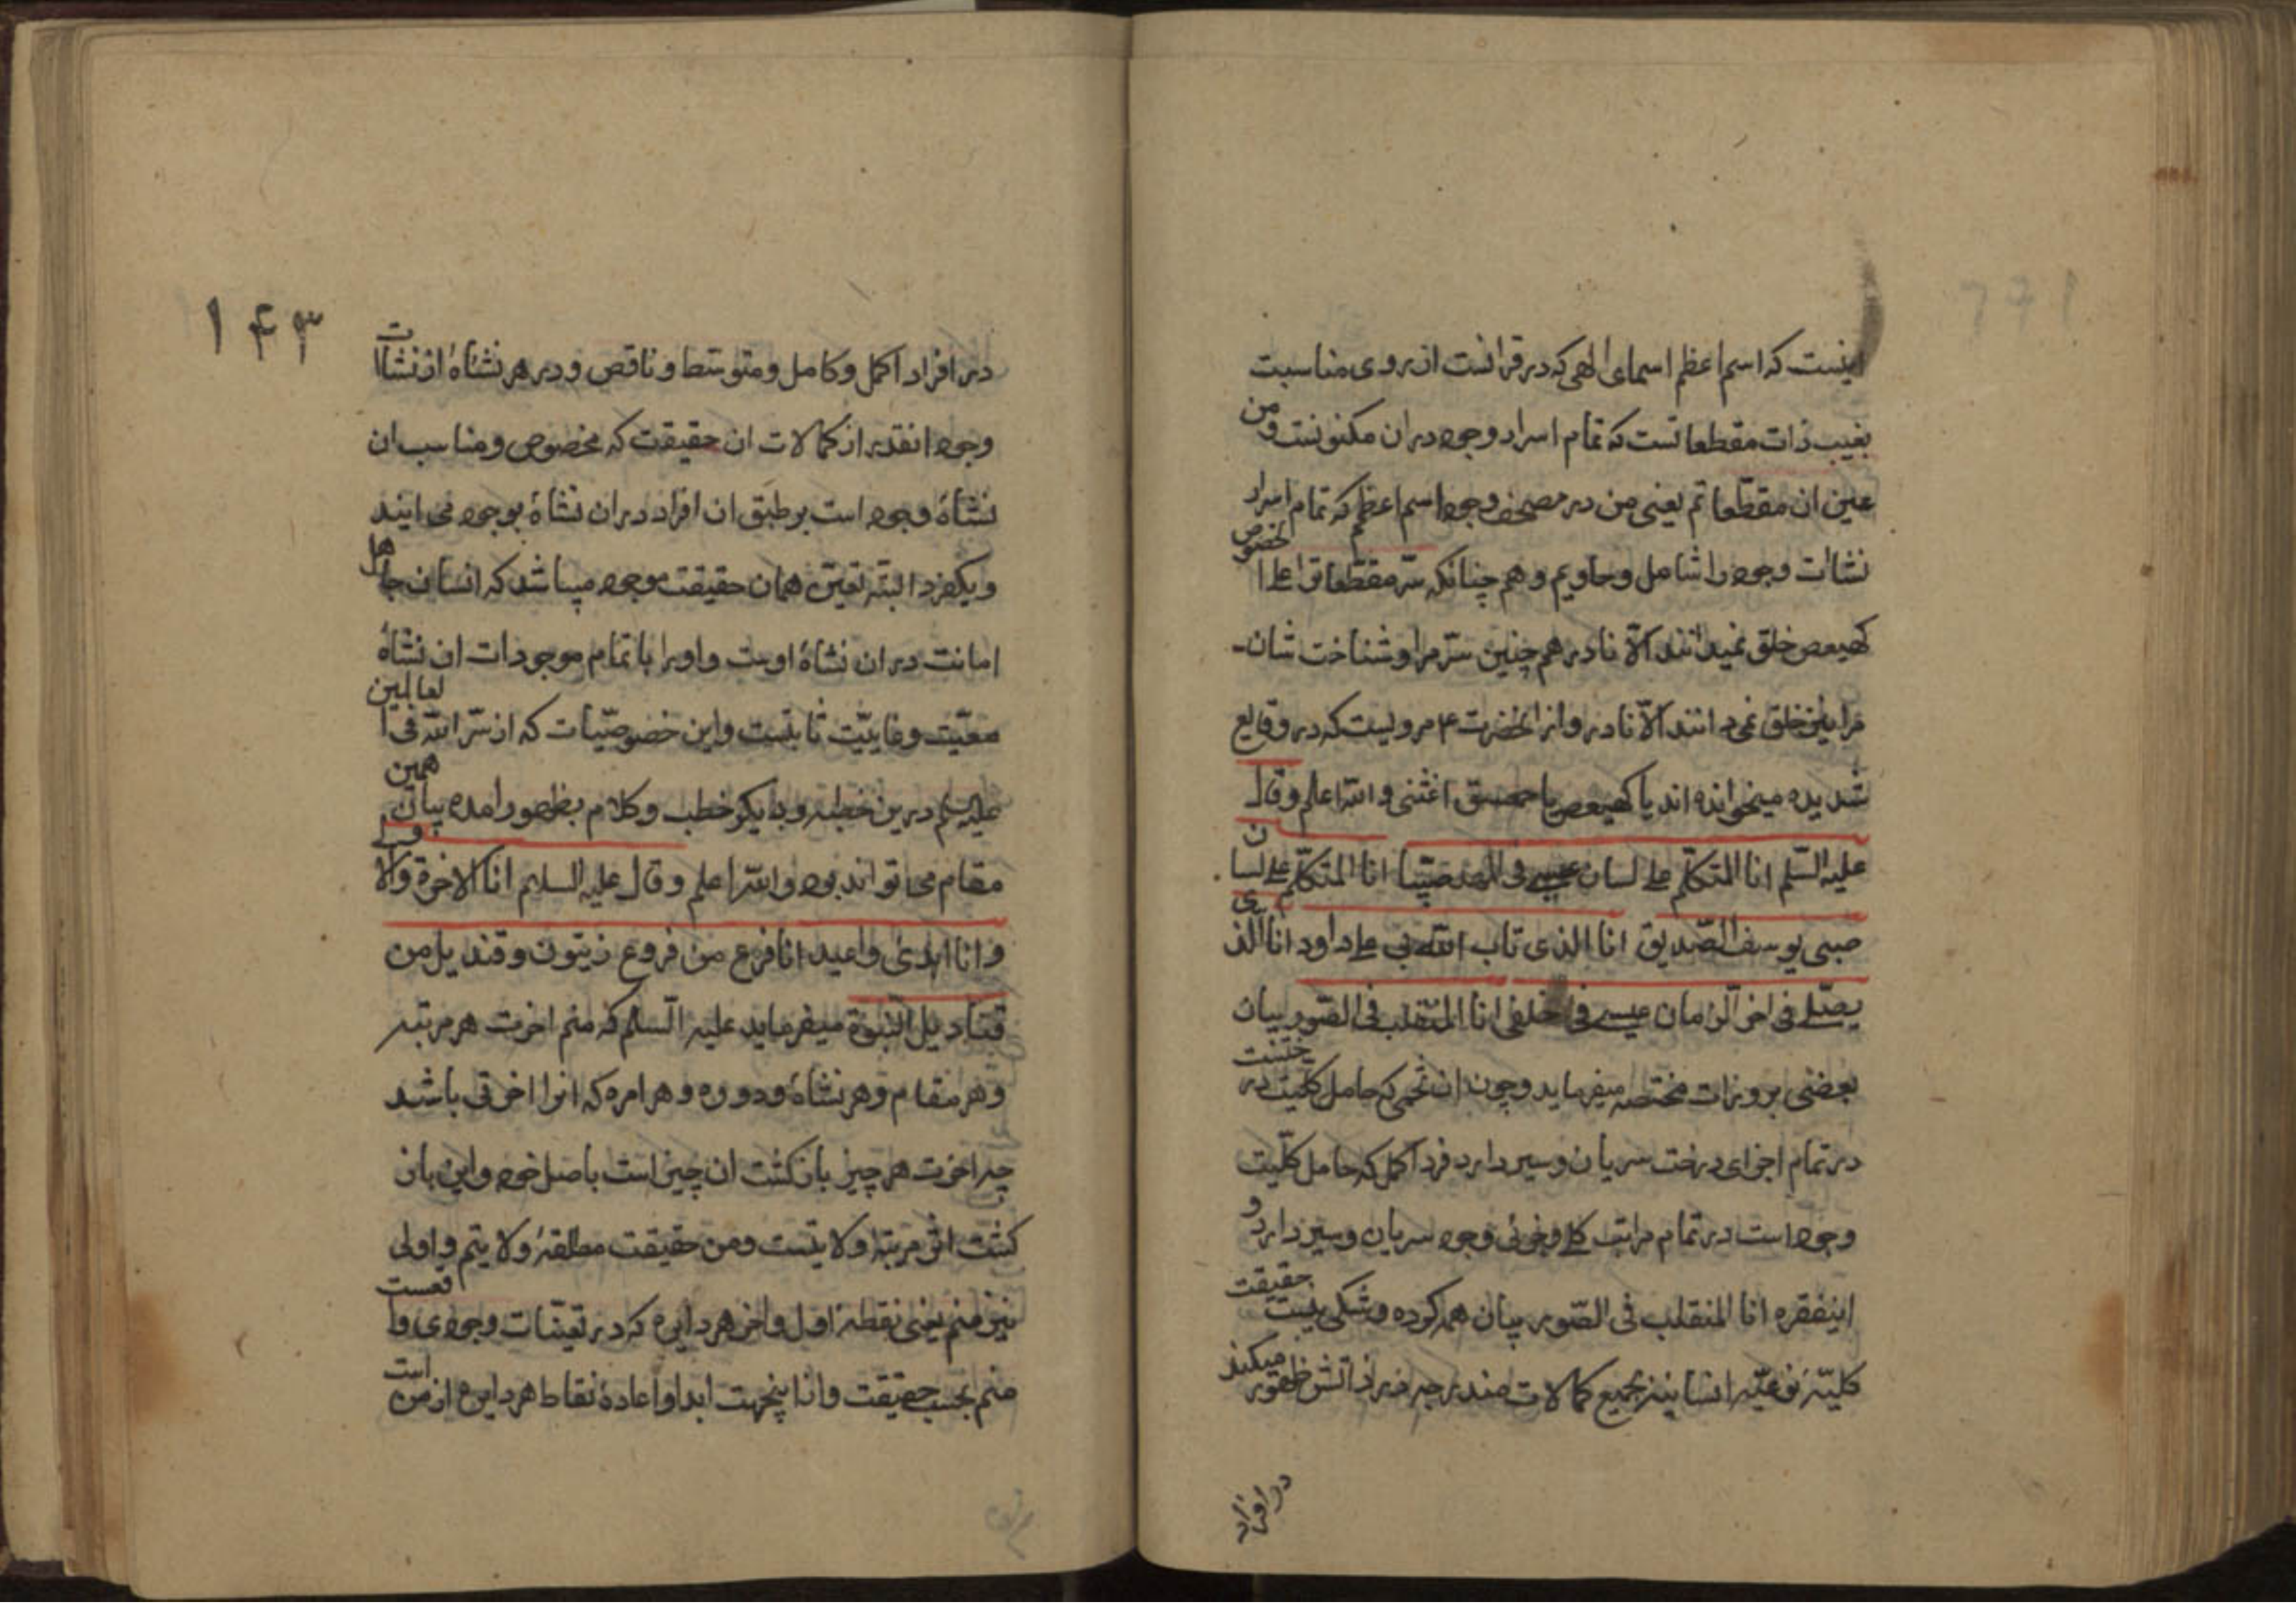 اینست که اسم اعظم اسمای الهی که در قرانست از روی مناسبت
بغیب ذات مقطعاتست که تمام اسرار وجود در ان مکنونست و من
عین ان مقطعاتم یعنی من در مصحف وجود اسم اعظم که تمام اسرار
نشات وجود را شامل و حاویم و هم چنانکه سر مقطعات علی الخصوص
کهیعص خلق نمیدانند الا نادر هم چنین سر مرا و شناخت شان
مرا نیز خلق نمی دانند الا نادر و از انحضرت ع مرویست که در وقایع
شدیده میخوانده اند یا کهیعص یا حمعسق اغثنی و الله اعلم و قال
علیه السلم انا المتکلم علی لسان عیسی فی المهد صبیا انا المتکلم علی لسان
صبی یوسف الصدیق انا الذی تاب الله بی علی داود انا الذی
یصلی فی اخر الزمان عیسی فی خلفی انا المتقلب فی الصور بیان
بعضی بروزات مختصه میفرماید و چون ان تخمی که حامل کلیت درختست
در تمام اجزای درخت سریان و سیر دارد فرد اکمل که حامل کلیت
وجود است در تمام مراتب کلی و جزئی وجود سریان و سیر دارد و
اینفقره انا المنقلب فی الصور بیان همه کرده و شکی نیست حقیقت
کلیه نوعیه انسانیه بجمیع کمالات مندرجه در ذاتش ظهور میکند
در افراد
۱۴۳
در افراد اکمل و کامل و متوسط و ناقص و در هر نشاهٔ از نشاات
وجود انقدر از کمالات ان حقیقت که مخصوص و مناسب ان
نشاهٔ وجود است بر طبق ان افراد در ان نشاهٔ بوجود می ایند
و یکفرد البته تعین همان حقیقت موجود میباشد که انسان حامل
امانت در ان نشاهٔ اوست و اورا با تمام موجودات ان نشاهٔ
معیت و غاییت ثابتست و این خصوصیات که از سر الله فی العالمین
علیه السلم درین خطبه و دیکر خطب و کلام بظهور امده بیان همین
مقام می تواند بود و الله اعلم و قال علیه السلم انا الاخرة و الاولی
و انا ابدئ و اعید انا فرع من فروع زیتون و قندیل من
قنادیل النبوة میفرماید علیه السلم که منم اخرت هر مرتبه
و هر مقام و هر نشاهٔ و دوره و هر امره که انرا اخرتی باشد
چه اخرت هر چیز بازکشت ان چیز است باصل خود و این باز
کشت از مرتبهٔ ولایتست و من حقیقت مطلقهٔ ولایتم و اولی
نیز منم یعنی نقطهٔ اول و اخر هر دایره که در تعینات وجودی واقعست
منم بحسب حقیقت و ازینجهت ابدا و اعادهٔ نقاط هر دایره از من است